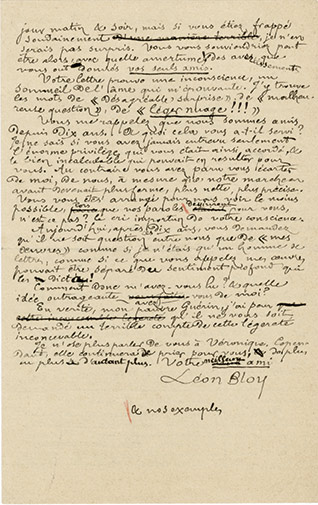 jour matin & soir, mais si vous étiez frappé
soudainement d'une manière terrible, je n'en
serais pas surpris. Vous vous souviendriez peut
être alors, avec quelle amertume! des avertissements
que vous ont donnés vos seuls amis.
Votre lettre prouve une inconscience, un
sommeil de l'âme qui m'épouvante. J'y trouve
les mots de « Désagréable surprise », de « malheu-
reuse question », de « Léger nuage »!!!
Vous me rappelez que nous sommes amis
depuis Dix ans. À quoi cela vous a-t-il servi?
Je ne sais si vous avez jamais entrevu seulement
l'énorme privilège qui vous était ainsi accordé &
le bien incalculable qui pouvait en résulter pour
vous. Au contraire vous avez paru vous écarter
de moi, de nous, à mesure que notre marche en
avant devenait plus ferme, plus nette, plus précise.
Vous vous êtes arrangé pour avoir le moins
possible que nos paroles pour vous,
n'est-ce pas? le cri importun de votre conscience.
Aujourd'hui, après Dix ans, vous demandez
qu'il ne soit question entre nous que de « mes
œuvres » comme si je n'étais qu'un homme de
lettre, comme si ce que vous appelez mon œuvre,
pouvait être séparé du sentiment profond qui
les Dicte!
Comment donc m'avez-vous lu? & quelle
idée outrageante avez vous de moi?
En vérité, mon pauvre Guérin, j'ai peur
qu'il ne vous soit
demandé un terrible compte de cette légèreté
inconcevable.
Je n'ose plus parler de vous à Véronique. Cepen-
dant, elle continuera de prier pour vous, & de plus
en plus & d'autant plus. Votre meilleur ami
Léon Bloy
& nos exemples